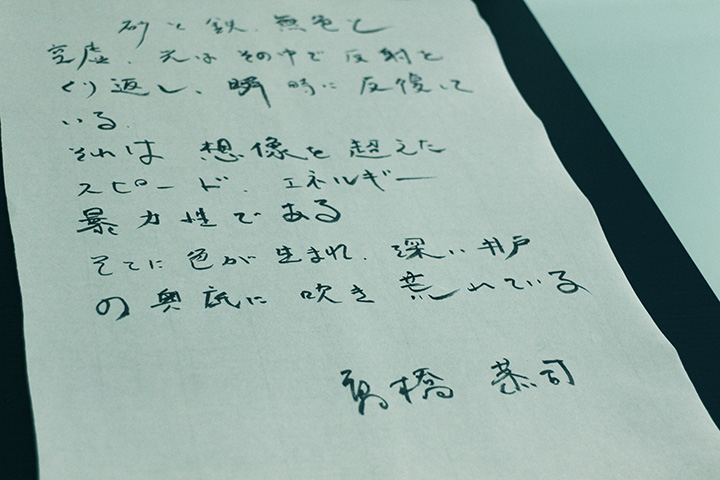 砂と鉄、無色と
空虚、光はその中で反射を
くり返し、瞬時に反復して
いる、
それは想像を超えた
スピード、エネルギー
暴力性である
そこに色が生まれ、深い井戸
の奥底に吹き荒れている
髙橋恭司